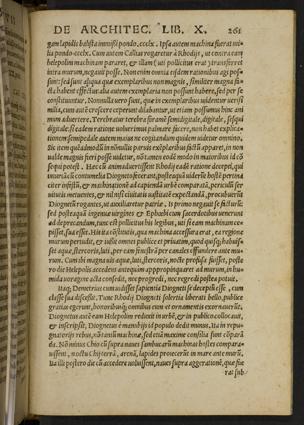 DE ARCHITEC. LIB. X. 261
gam lapidis balista immissi pondo. ccclx. Ipsa autem machina fuerat mi-
lia pondo ccclx. Cum autem Callias rogaretur à Rhodijs, ut contra eam
helepolim machinam pararet, & illam (uti pollicitus erat) transferret
intra murum, negauit posse. Non enim omnia eisdem rationibus agi pos-
sunt: sed sunt aliqua quæ exemplaribus non magnis, similiter magna fa-
cta habent effectus: alia autem exemplaria non possunt habere, sed per se
constituuntur. Nonnulla uero sunt, quæ in exemplaribus uidentur uerisi-
milia, cum autem crescere coeperunt dilabuntur, ut etiam possumus hinc ani-
mum aduertere. Terebratur terebra foramē semidigitale, digitale, sesqui
digitale: si eadem ratione uoluerimus palmare facere, non habet explica-
tionem: semipedale autem maius ne cogitandum quidem uidetur omnino.
Sic item quēadmodū in nōnullis paruis exēplaribus factū apparet, in non
ualde magnis fieri posse uidetur, nō tamen eodē modo in maioribus id cō
sequi potest. Hæc cū animaduertissent Rhodij eadē ratione decepti, qui
iniuriā cū contumelia Diogneto fecerant, posteaquā uiderūt hostē pertina
citer infestū, & machinationē ad capiendā urbē comparatā, periculū ser
uitutis metuentes, & nil nisi ciuitatis uastitatē expectandā, procubuerūt
Diognetū rogantes, ut auxiliaretur patriæ. Is primo negauit se facturū:
sed posteaquā ingenuæ uirgines & Ephoebi cum sacerdotibus uenerunt
ad deprecandum, tunc est pollicitus his legibus, uti si eam machinam ce-
pisset, sua esset. His ita cōstitutis, qua machina accessura erat, ea regione
murum pertudit, et iussit omnes publice et priuatim, quod quisq; habuis-
set aquæ, stercoris, luti, per eam fenestrā per canales effundere ante mu-
rum. Cum ibi magna uis aquæ, luti, stercoris, nocte profusa fuisset, poste
ro die Helepolis accedens antequam appropinquaret ad murum, in hu-
mida uoragine acta consedit, nec progredi, nec regredi postea potuit.
Itaq; Demetrius cum uidisset sapientia Diogneti se deceptū esse, cum
classe sua discessit. Tunc Rhodij Diogneti solertia liberati bello, publice
gratias egerunt, honoribusq; omnibus eum et ornamentis exornauerūt,
Diognetus autē eam Helepolim reduxit in urbē, & in publico collocauit,
& inscripsit, Diognetus è manubijs id populo dedit munus. Ita in repu-
gnatorijs rebus, nō tantū machinæ, sed etiā maxime consilia sunt cōparā
da. Nō minus Chio cū supra naues sambucarū machinas hostes compara-
uissent, noctu Chij terrā, arenā, lapides proiecerūt in mare ante murū,
Ita illi postero die cū accedere uoluissent, naues supra aggerationē, quæ fue
rat sub